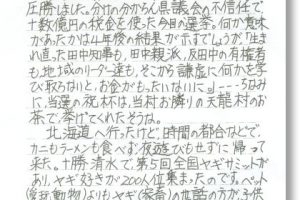 圧勝しました。分けの分からん県議会の不信任で
十数億円の税金を使った今回の選挙。何か意味
があったかは4年後の結果が示すでしょうが「生ま
れ直った田中知事も、田中親派、反田中の有権者
も、地域のリーダー達も、そこから謙虚に何かを学
び取らないと、お金がもったいないに。」---うちみ
に、当選の祝杯は、当村お隣りの天龍村のお
茶で、挙げてくれたそうな。
北海道へ行ったけど、時間の都合などで、
カニもラーメンも食べず夜遊びもせずに帰って
来た。十勝清水で、第5回全国ヤギサミットが
あり、ヤギ好きが200人位集まったのです。ペット
(愛玩動物)よりもヤギ(家畜)の世話の方が、子供